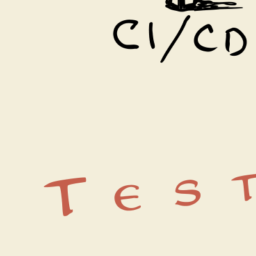 CI/CD
TEST